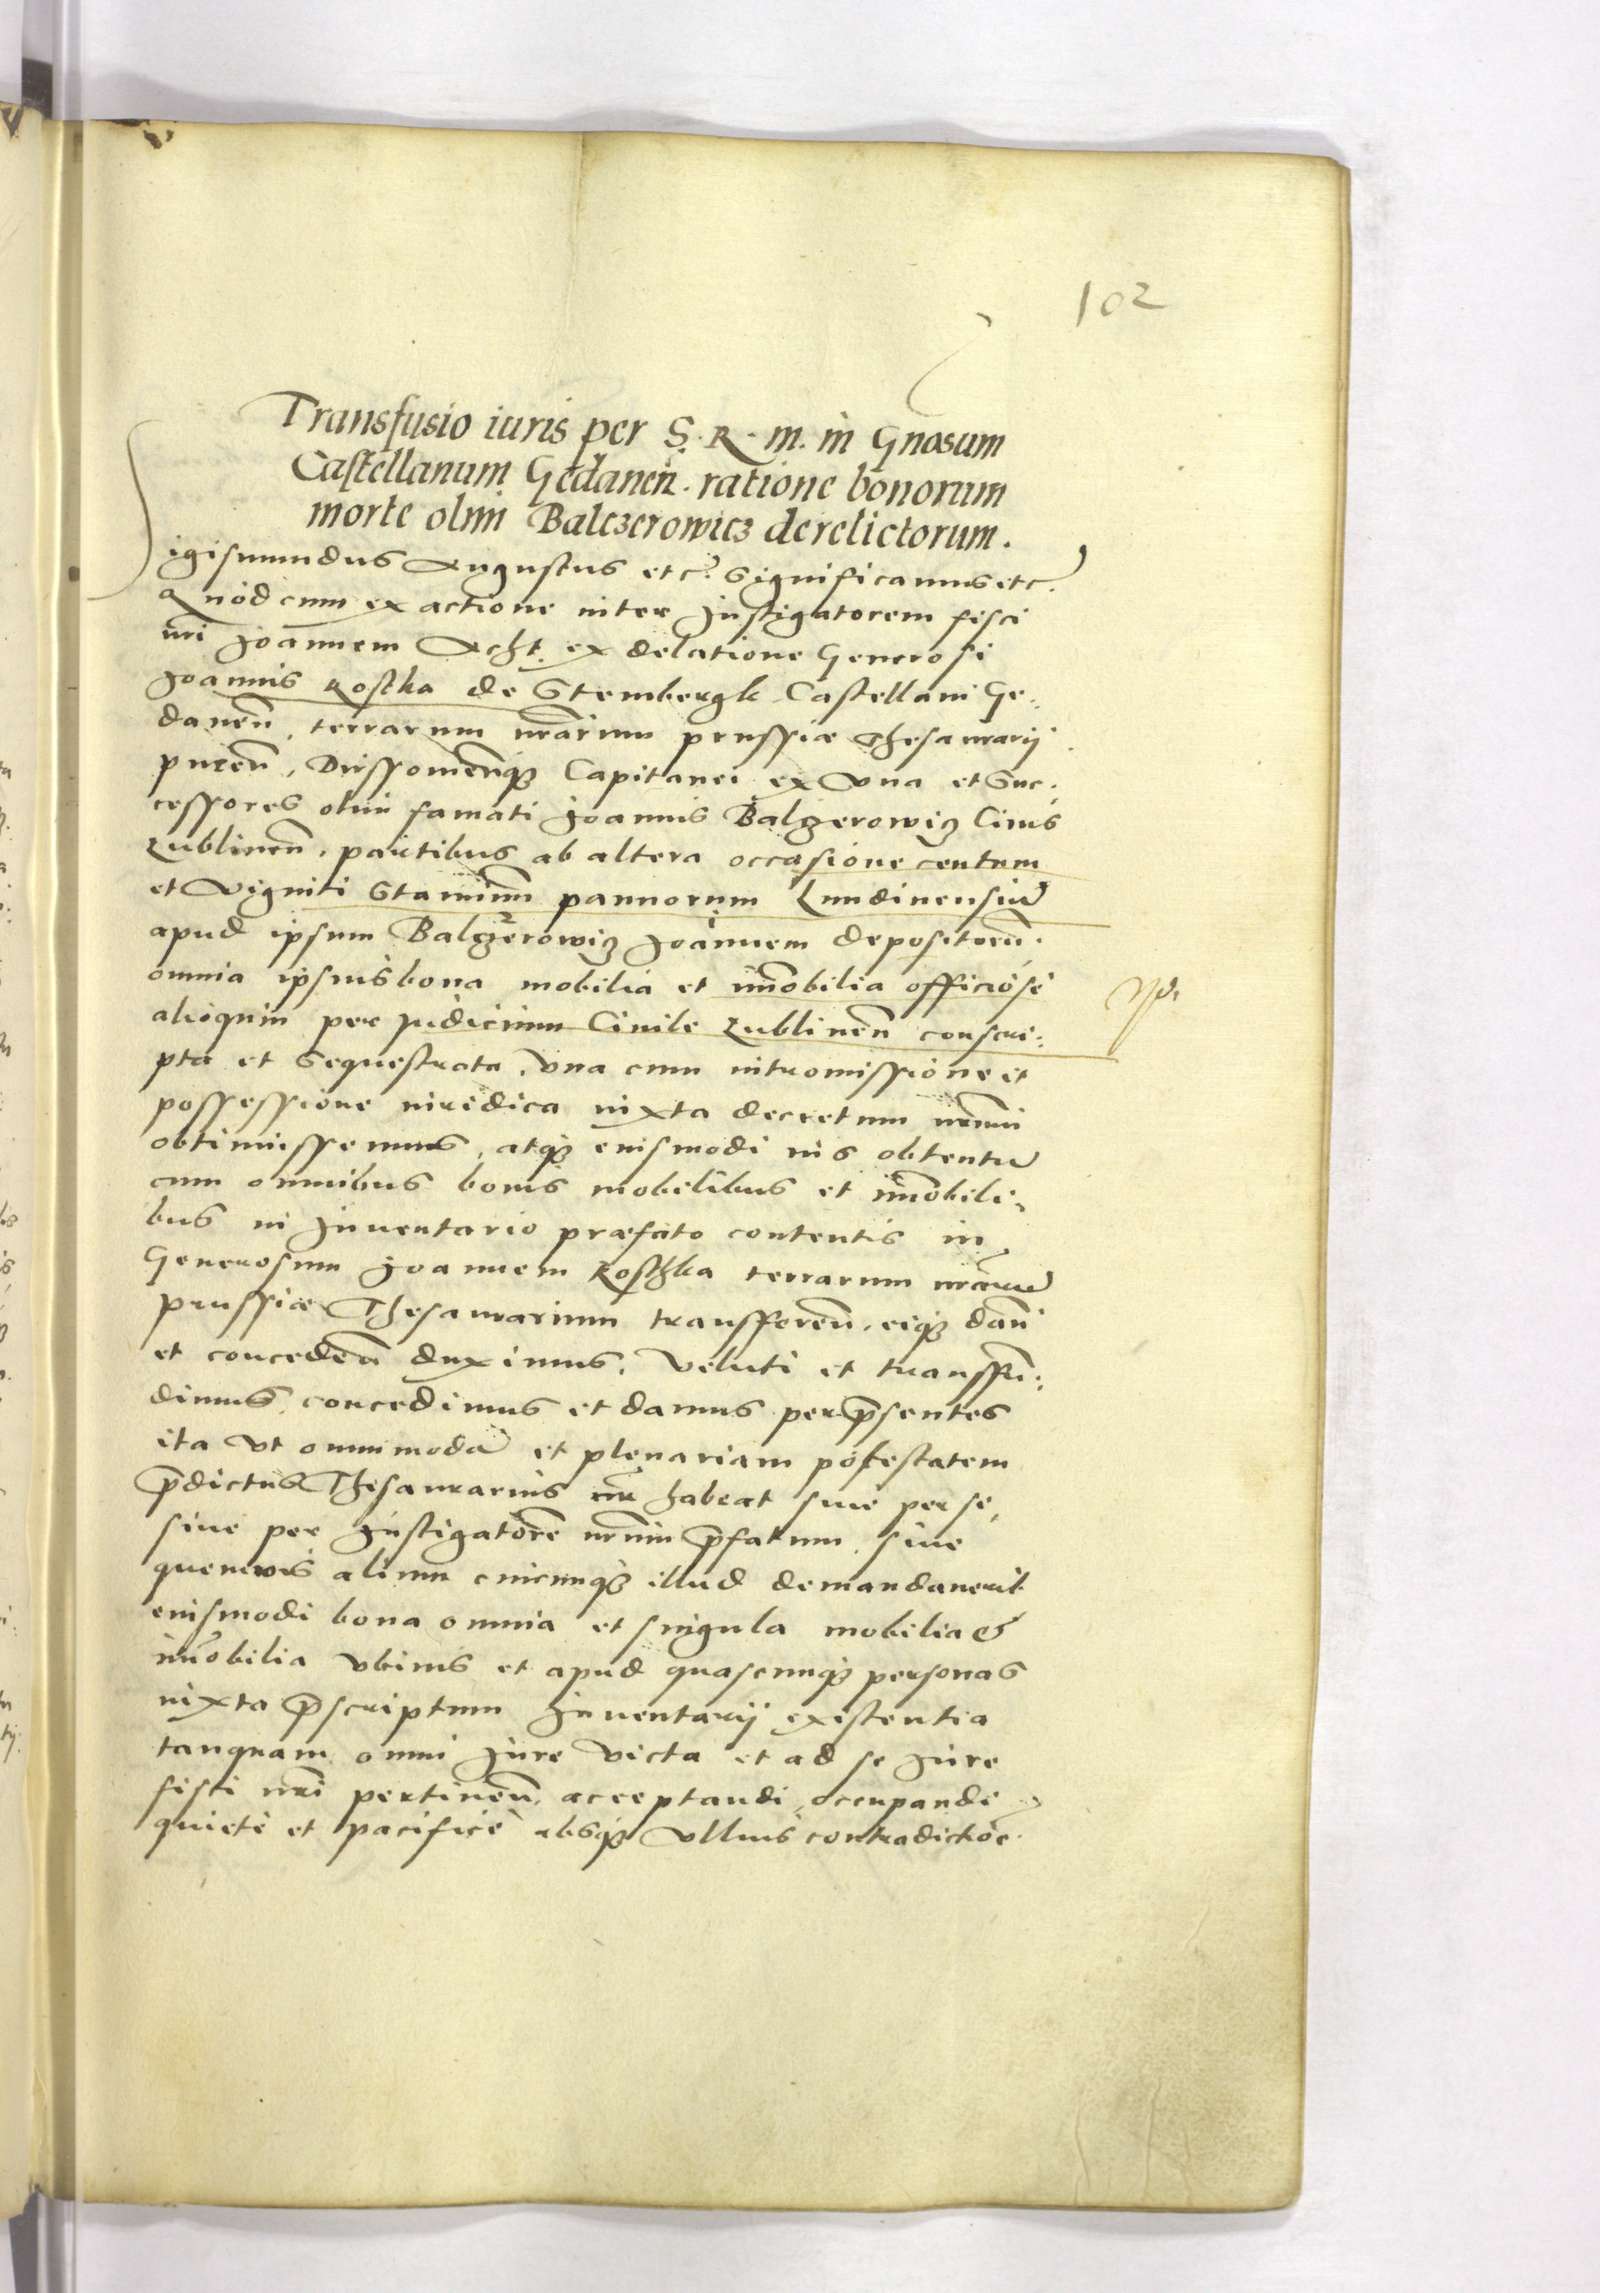 102
Transfusio iuris per S. R. m. in Gnosum
Castellanum Gedanen̄. ratione bonorum
morte olim Balczerowicz derelictorum.
Sigismundus Augustus etc̃. Significamus etc̃.
Quod cum ex actione inter Instigatorem fisci
nr̄i Joannem Acht. ex delatione Generosi
Joannis Kostka de Stembergk Castellani Ge-
danen̄, terrarum nr̄arum prussiæ Thesaurarij
pucen̄, Dirssomenq̃ Capitanei ex Vna et Suc-
cessores olim famati Joannis Balzerowiz Ciuis
Lublinen̄. partibus ab altera occasione centum
et Viginti Staminū pannorum Lundinensiū
apud ipsum Balzerowiz Joannem depositorū.
omnia ipsius bona mobilia et im̄obilia officiosè
alioquin per Judicium Ciuile Lublinen̄ conscri-
pta et Sequestrata, vna cum intromissione et
possessione iuridica iuxta decretum nr̄um
obtinuissemus, atq̃ eiusmodi ius obtentū
cum omnibus bonis mobilibus et im̄obili-
bus in Inuentario præfato contentis in
Generosum Joannem Kosthka terrarum nr̄arū
prussiæ Thesaurarium transferen̄. eiq̃ dan̄
et conceden̄ duximus. Veluti et transfun-
dimus concedimus et damus per p̄sentes
ita vt omnimodā et plenariam potestatem
p̄dictus Thesaurarius nr̄ habeat siue per se,
siue per Instigatorē nr̄um p̄fatum, siue
quemvis alium cuicunq̃ illud demandauerit
eiusmodi bona omnia et singula mobilia &
im̄obilia vbiuis et apud quascunq̃ personas
iuxta p̄scriptum Inuentarij existentia
tanquam omni Jure victa et ad se Jure
fisci nr̄i pertinen̄. acceptandi, occupandi
quietè et pacificè absq̃ vllius contradictiōe.